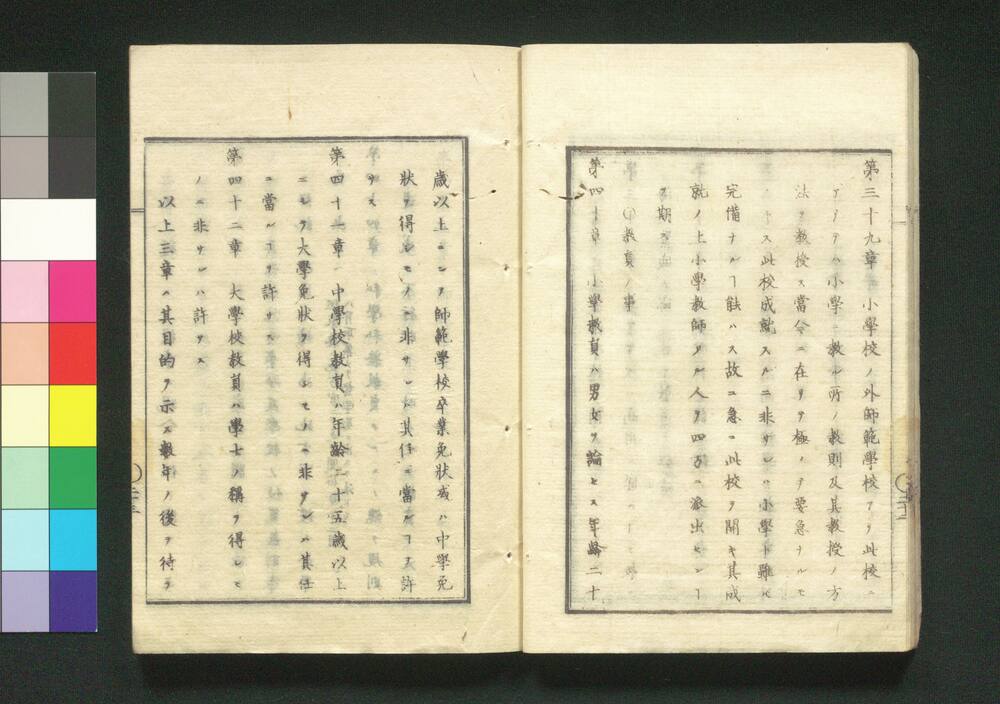 第三十九章 小學校ノ外師範學校アリ此校ニ
アリテハ小學ニ教ル所ノ教則及其教授ノ方
法ヲ教授ス當今ニ在リテ極メテ要急ナルモ
ノトス此校成就スルニ非サレハ小學ト雖モ
完備ナルヿ能ハス故ニ急ニ此校ヲ開キ其成
就ノ上小學教師タル人ヲ四方ニ派出センヿ
ヲ期ス
○教員ノ事
第四十章 小學教員ハ男女ヲ論セス年齢二十
歳以上ニシテ師範學校卒業免状或ハ中學免
狀ヲ得シモノニ非サレハ其任ニ當ルヿヲ許
サス
第四十一章 中學校教員ハ年齢二十五歳以上
ニシテ大學免狀ヲ得シモノニ非サレハ其任
ニ當ルヿヲ許サス
第四十二章 大學校教員ハ學士ノ稱ヲ得シモ
ノニ非サレハ許サス
以上三章ハ其目的ヲ示ス數年ノ後ヲ待テ